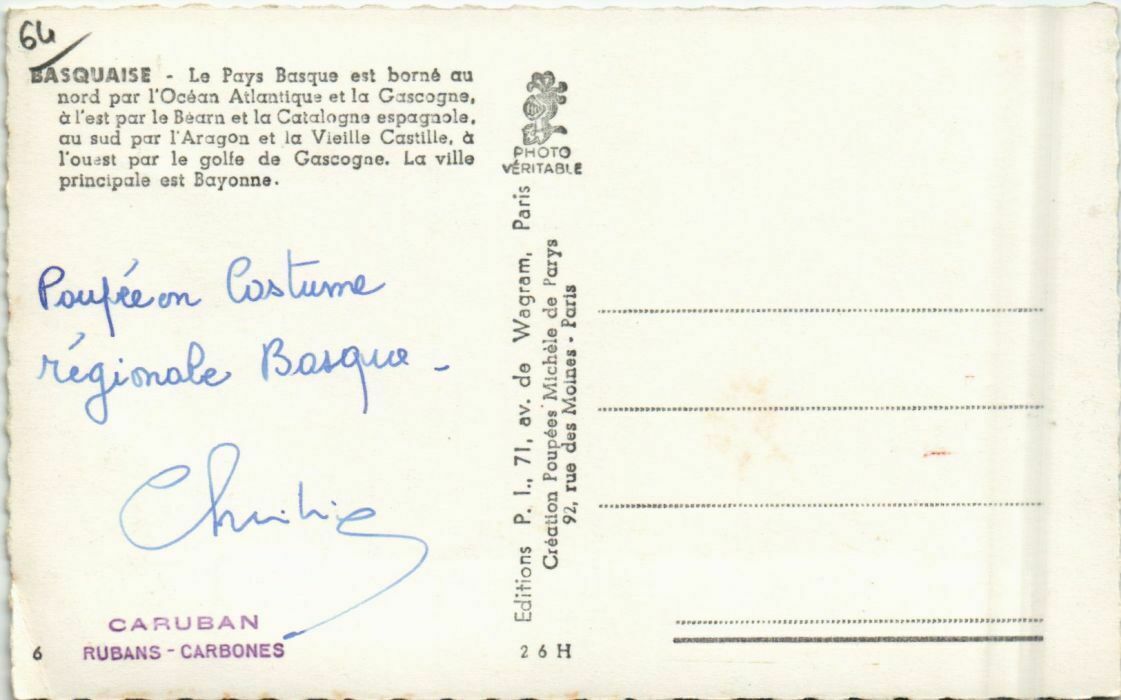 64
BASQUAISE - Le Pays Basque est borné au
nord par l'Océan Atlantique et la Gascogne,
à l'est par le Béarn et la Catalogne espagnole,
au sud par l'Aragon et la Vieille Castille, à
l'ouest par le golfe de Gascogne. La ville
principale est Bayonne.
Poupée en Costume
régionale Basque -
CARUBAN
RUBANS - CARBONES
6
PHOTO
VÉRITABLE
Editions P. I., 71, av. de Wagram, Paris
Création Poupées Michèle de Parys
92, rue des Moines - Paris
26H